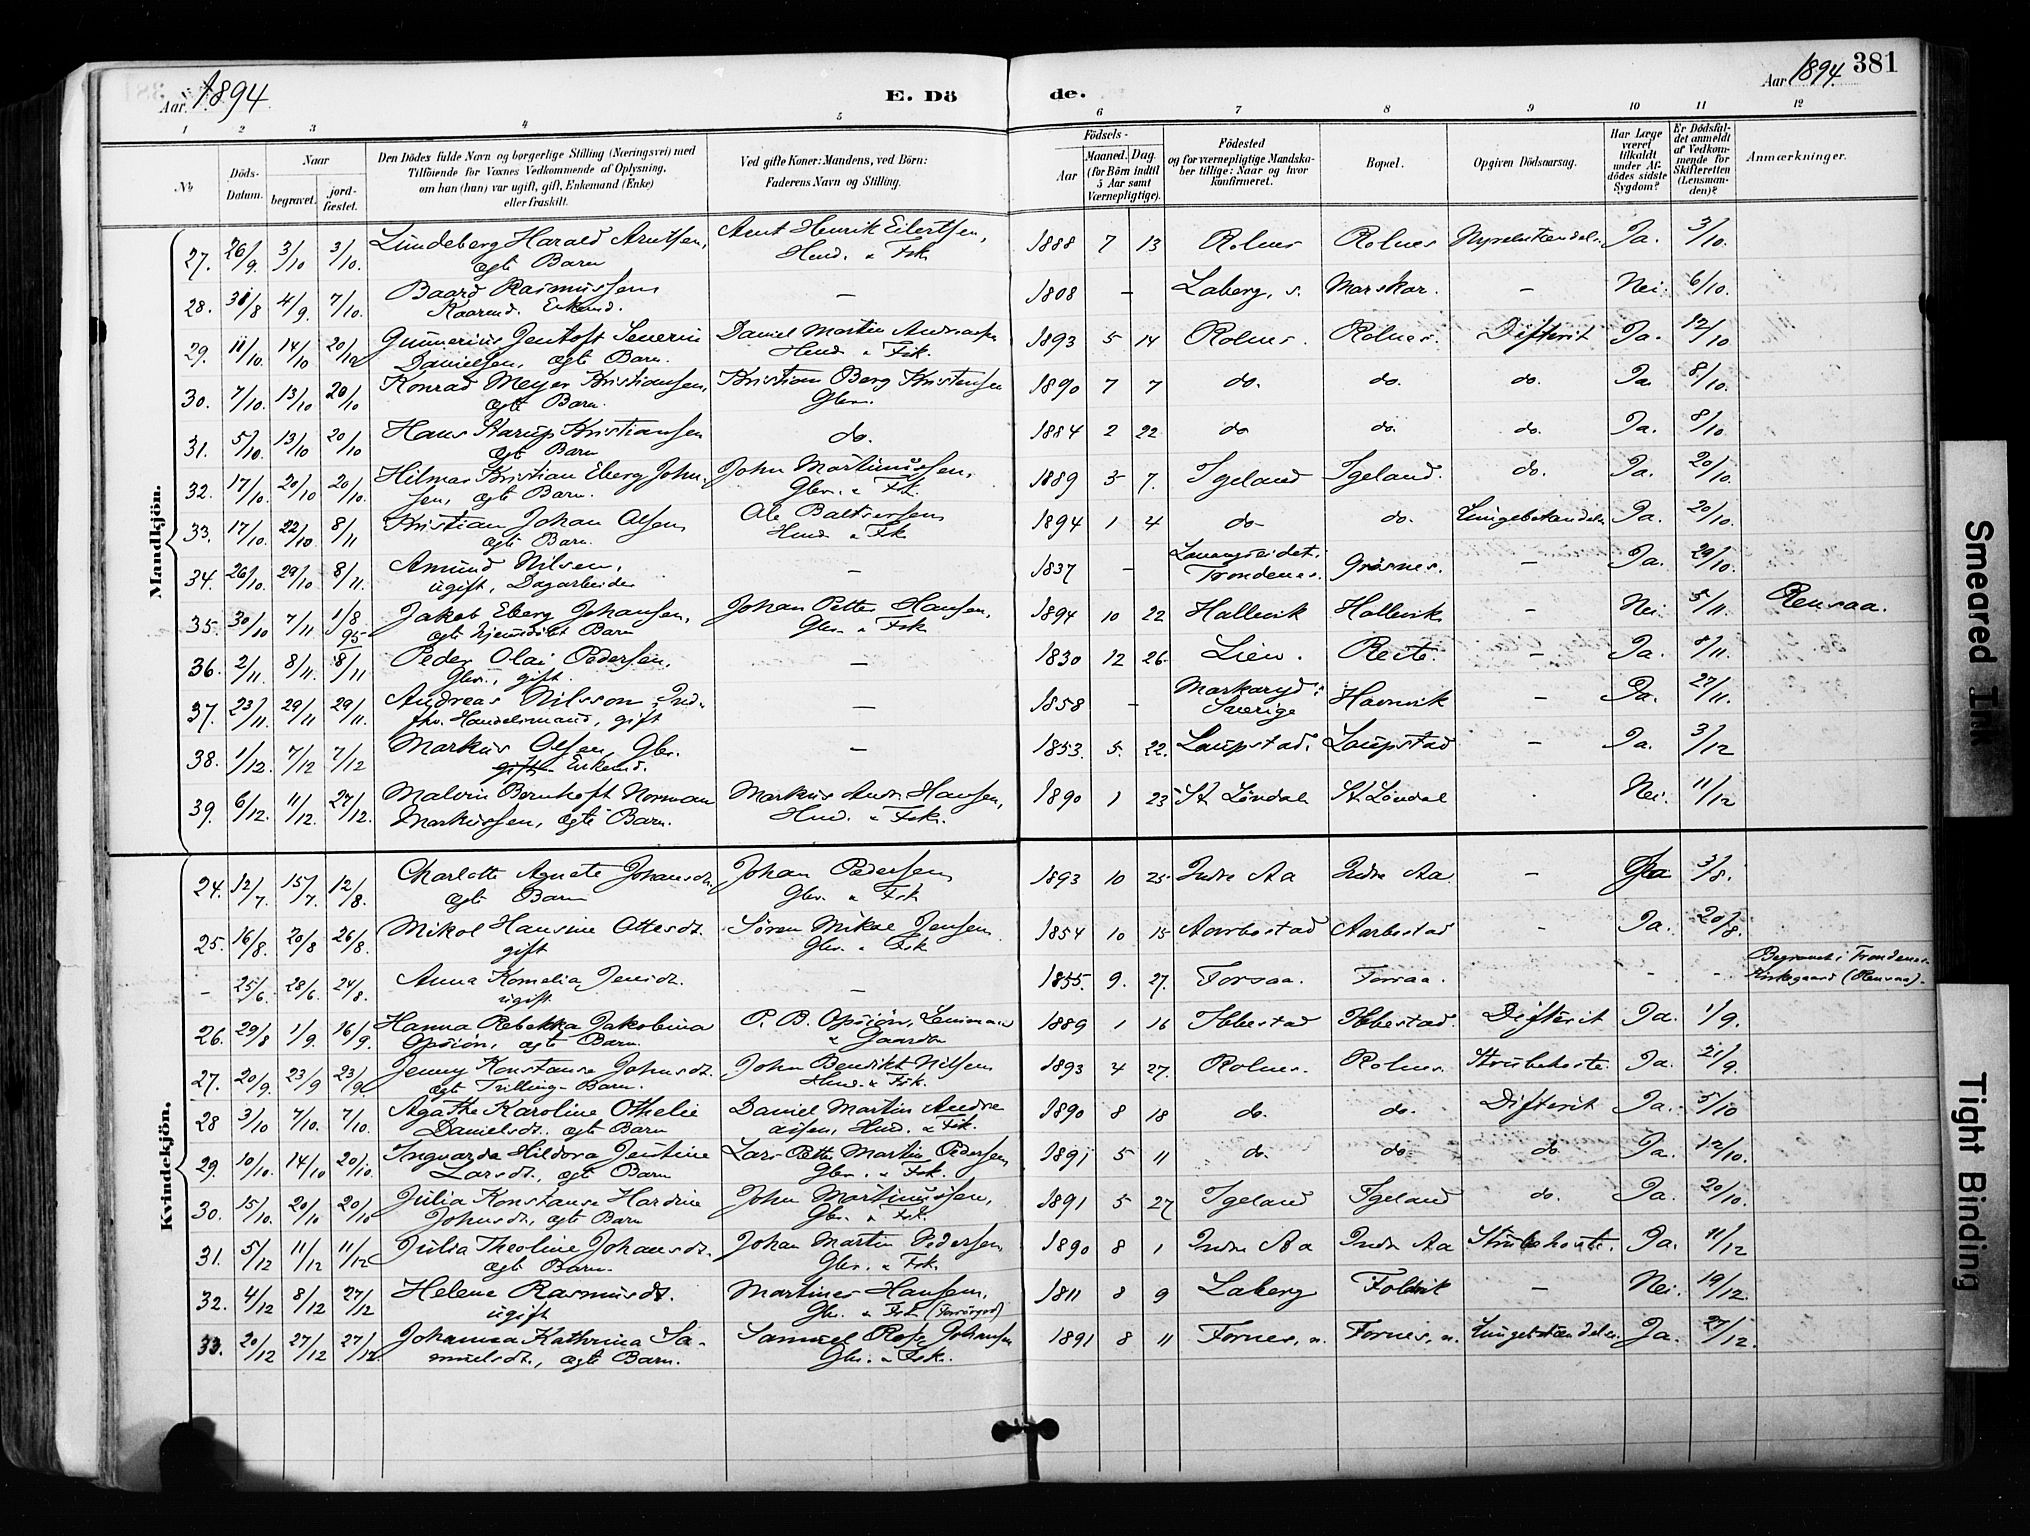 Aar 1894.
E. Dö
de.
Aar 1894. 381
1 2 3 4 5 6 7 8 9 10 11 12
№
Döds-Datum.
Naar
begravet.
jord-fæstet.
Den Dödes fulde Navn og borgerlige Stilling (Næringsvei) med
Tilföiende for Voxnes Vedkommende af Oplysning,
om han (hun) var ugift, gift, Enkemand (Enke)
eller fraskilt.
Ved gifte Koner: Mandens, ved Börn:
Faderens Navn og Stilling.
Födsels-
Aar
Maaned. Dag.
(for Börn indtil
5 Aar samt
Værnepligtige).
Födested
og for værnepligtige Mandska-
ber tillige: Naar og hvor
konfirmeret.
Bopæl.
Opgiven Dödsaarsag.
Har Læge
været
tilkaldt
under Af-
dödes sidste
Sygdom?
Er Dödsfal-
det anmeldt
af Vedkom-
mende for
Skifteretten
(Lensman-
den)?
Anmærkninger.
Mandkjön.
27. 26/9. 3/10 3/10. Lundeberg Harald Arntsen, Arnt Henrik Eilertsen, 1888 7 13 Rolnes Rolnes Ja. 3/10.
ægte Barn Hmd. & Fsk.
28. 31/8 4/9. 7/10. Baard Rasmussen — 1808 — Laberg, s. Marskar. — Nei. 6/10.
Kaarmd. Enkemd.
29. 11/10. 14/10 20/10 Gunnerius Jentoft Severin Daniel Martin 1893 5 14 Rolnes. Rolnes. Difterit Ja. 12/10
Danielsen, ægte Barn. Hmd. & Fsk.
30. 7/10. 13/10 20/10 Konrad Meyer Kristiansen, Kristian Berg Kristensen 1890 7 7 do. do. do. Ja 8/10.
ægte Barn. Gbr.
31. 5/10. 13/10 20/10 Hans Starup Kristiansen do. 1884 2 22 do do. do. Ja. 8/10.
ægte Barn
32. 17/10. 20/10 20/10. Hilmar Kristian Eberg John- John Martinussen, 1889 3 7. Igeland Igeland. do. Ja. 20/10.
sen, ægte Barn. Gbr. & Fsk.
33. 17/10. 22/10. 8/11 Kristian Johan Olsen Ole Baltsersen 1894 1 4 do- do. Lungebetændelse Ja. 20/10.
ægte Barn. Hmd. & Fsk
34. 26/10. 29/10 8/11. Amund Nilsen, — 1837 — Lavangseidet, Grøsnes. — Ja. 29/10.
ugift, Dagarbeider Trondenes.
35. 30/10 7/11 1/8 95 Jakob Eberg Johansen, Johan Petter Hansen, 1894 10 22 Hallevik Hallevik — Nei. 5/11. Rensaa.
ægte hjemdøbt Barn Gbr. & Fsk
36. 2/11. 8/11. 8/11 Peder Olai Pedersen, — 1830 12 26 Lien. Reite. — Ja. 8/11.
Gbr., gift.
37. 23/11. 29/11 29/11. Andreas Nilsson — 1858 — Markaryd, Havnvik — Ja. 27/11.
fhv. Handelsmand, gift Sverige
38. 1/12. 7/12 7/12 Markus Olsen, Gbr. — 1853. 5. 22. Laupstad. Laupstad — Ja. 3/12
gift Enkemd.
39. 6/12. 11/12. 27/12. Malvin Bernhoft Norman Markus Andr. Hansen, 1890 1 23 St. Løndal St. Løndal Nei. 11/12
Markussen, ægte Barn. Hmd. & Fsk.
Kvindekjön.
24. 12/7. 15/7. 12/8. Charlotte Agnete Johansdt. Johan Pedersen 1893 10 25 Indre Aa Indre Aa. — Ja 3/8.
ægte Barn Gbr. & Fsk
25. 16/8. 20/8 26/8. Mikol Hansine Ottesdt. Søren Mikal Jensen 1854 10 15 Aarbostad Aarbostad - Ja. 20/8.
gift Gbr. & Fsk
- 25/6. 28/6. 24/8. Anna Kornelia Jensdt. — 1855. 9. 27. Forsaa. Forsaa. - - Begravet i Trondenes
ugift. Kirkegaard (Rensaa).
26. 29/8 1/9. 16/9. Hanna Rebekka Jakobina P. B. Opsiøn, Lensman 1889 1 16 Ibbestad Ibbestad. Difterit Ja. 1/9.
Opsiøn, ægte Barn. & Gaardbr
27. 20/9. 23/9 23/9 Jenny Konstanse Johnsdt. John Benedikt Nilsen 1893 4 27. Rolnes. Rolnes. Strubehoste. Ja. 21/9.
ægte Tvilling-Barn. Hmd. & Fsk.
28 3/10 7/10. 7/10. Agathe Karoline Othelie Daniel Martin Andre 1890 8 18 do. do. Difterit Ja. 5/10
Danielsdt. ægte Barn assen, Hmd. & Fsk.
29. 10/10. 14/10 20/10. Ingvarda Hildora Jentine Lars Petter Martin Pedersen 1891 5 11 do. do. do Ja. 12/10.
Larsdt., ægte Barn Gbr. & Fsk.
30. 15/10. 20/10 20/10 Julia Konstanse Hardine John Martinussen, 1891 5 27 Igeland Igeland do. Ja. 20/10.
Johnsdt., ægte Barn Gbr. & Fsk.
31. 5/12 11/12 11/12 Julia Theoline Johansdt. Johan Martin Pedersen 1890 8 1 Indre Aa Indre Aa Strubehoste. Ja. 11/12
ægte Barn. Gbr. & Fsk.
32. 4/12 8/12 27/12 Helene Rasmusdt. Martines Hansen, 1811 8 9 Laberg Foldvik — Nei. 19/12.
ugift Gbr. & Fsk (Forsørged)
33. 20/12 27/12 27/12. Johanna Kathrina Sa- Samuel Rose Johansen 1891 8 11 Fornes, n. Fornes, n. Lungebetændelse. Ja. 27/12.
muelsdt., ægte Barn. Gbr. & Fsk.
Smeared Ink
Tight Binding